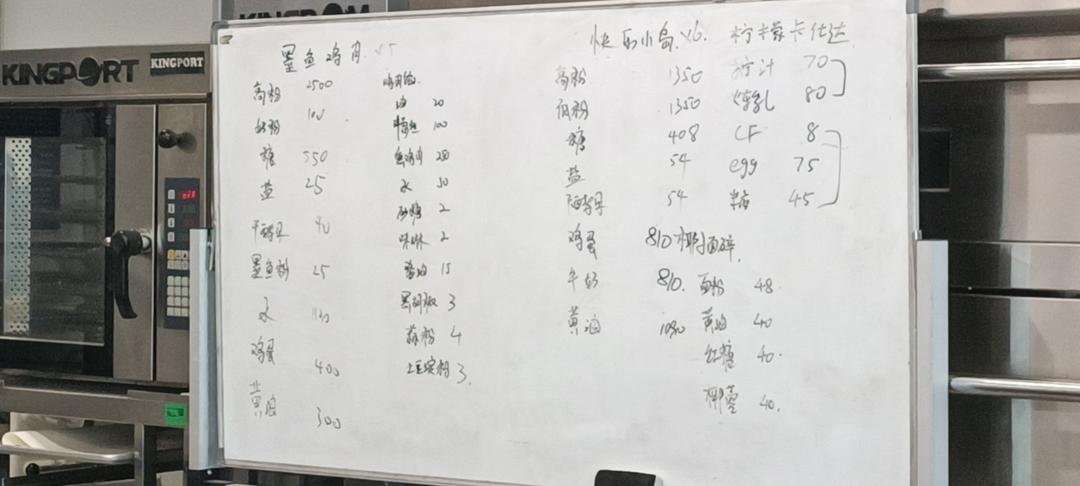 KINGPORT
KINGPORT
KINGPORT
墨鱼鸡肉 x5
高粉 2500
糖 550
盐 25
干酵母 40
墨鱼粉 25
水
鸡蛋 400
黄油 300
油 20
100
水 50
砂糖 2
味淋 2
酱油 15
黑胡椒 3
蒜粉 4
土豆淀粉 3
快乐小岛 x6.
高粉 1350
低粉 1350
糖 408
盐 54
干酵母 54
鸡蛋 810
牛奶 810.
黄油 1080
柠檬卡仕达
柠汁 70
炼乳 80
CF 8
egg 75
糖 45
椰蓉酥碎
面粉 48
黄油 40
红糖 40.
椰蓉 40.